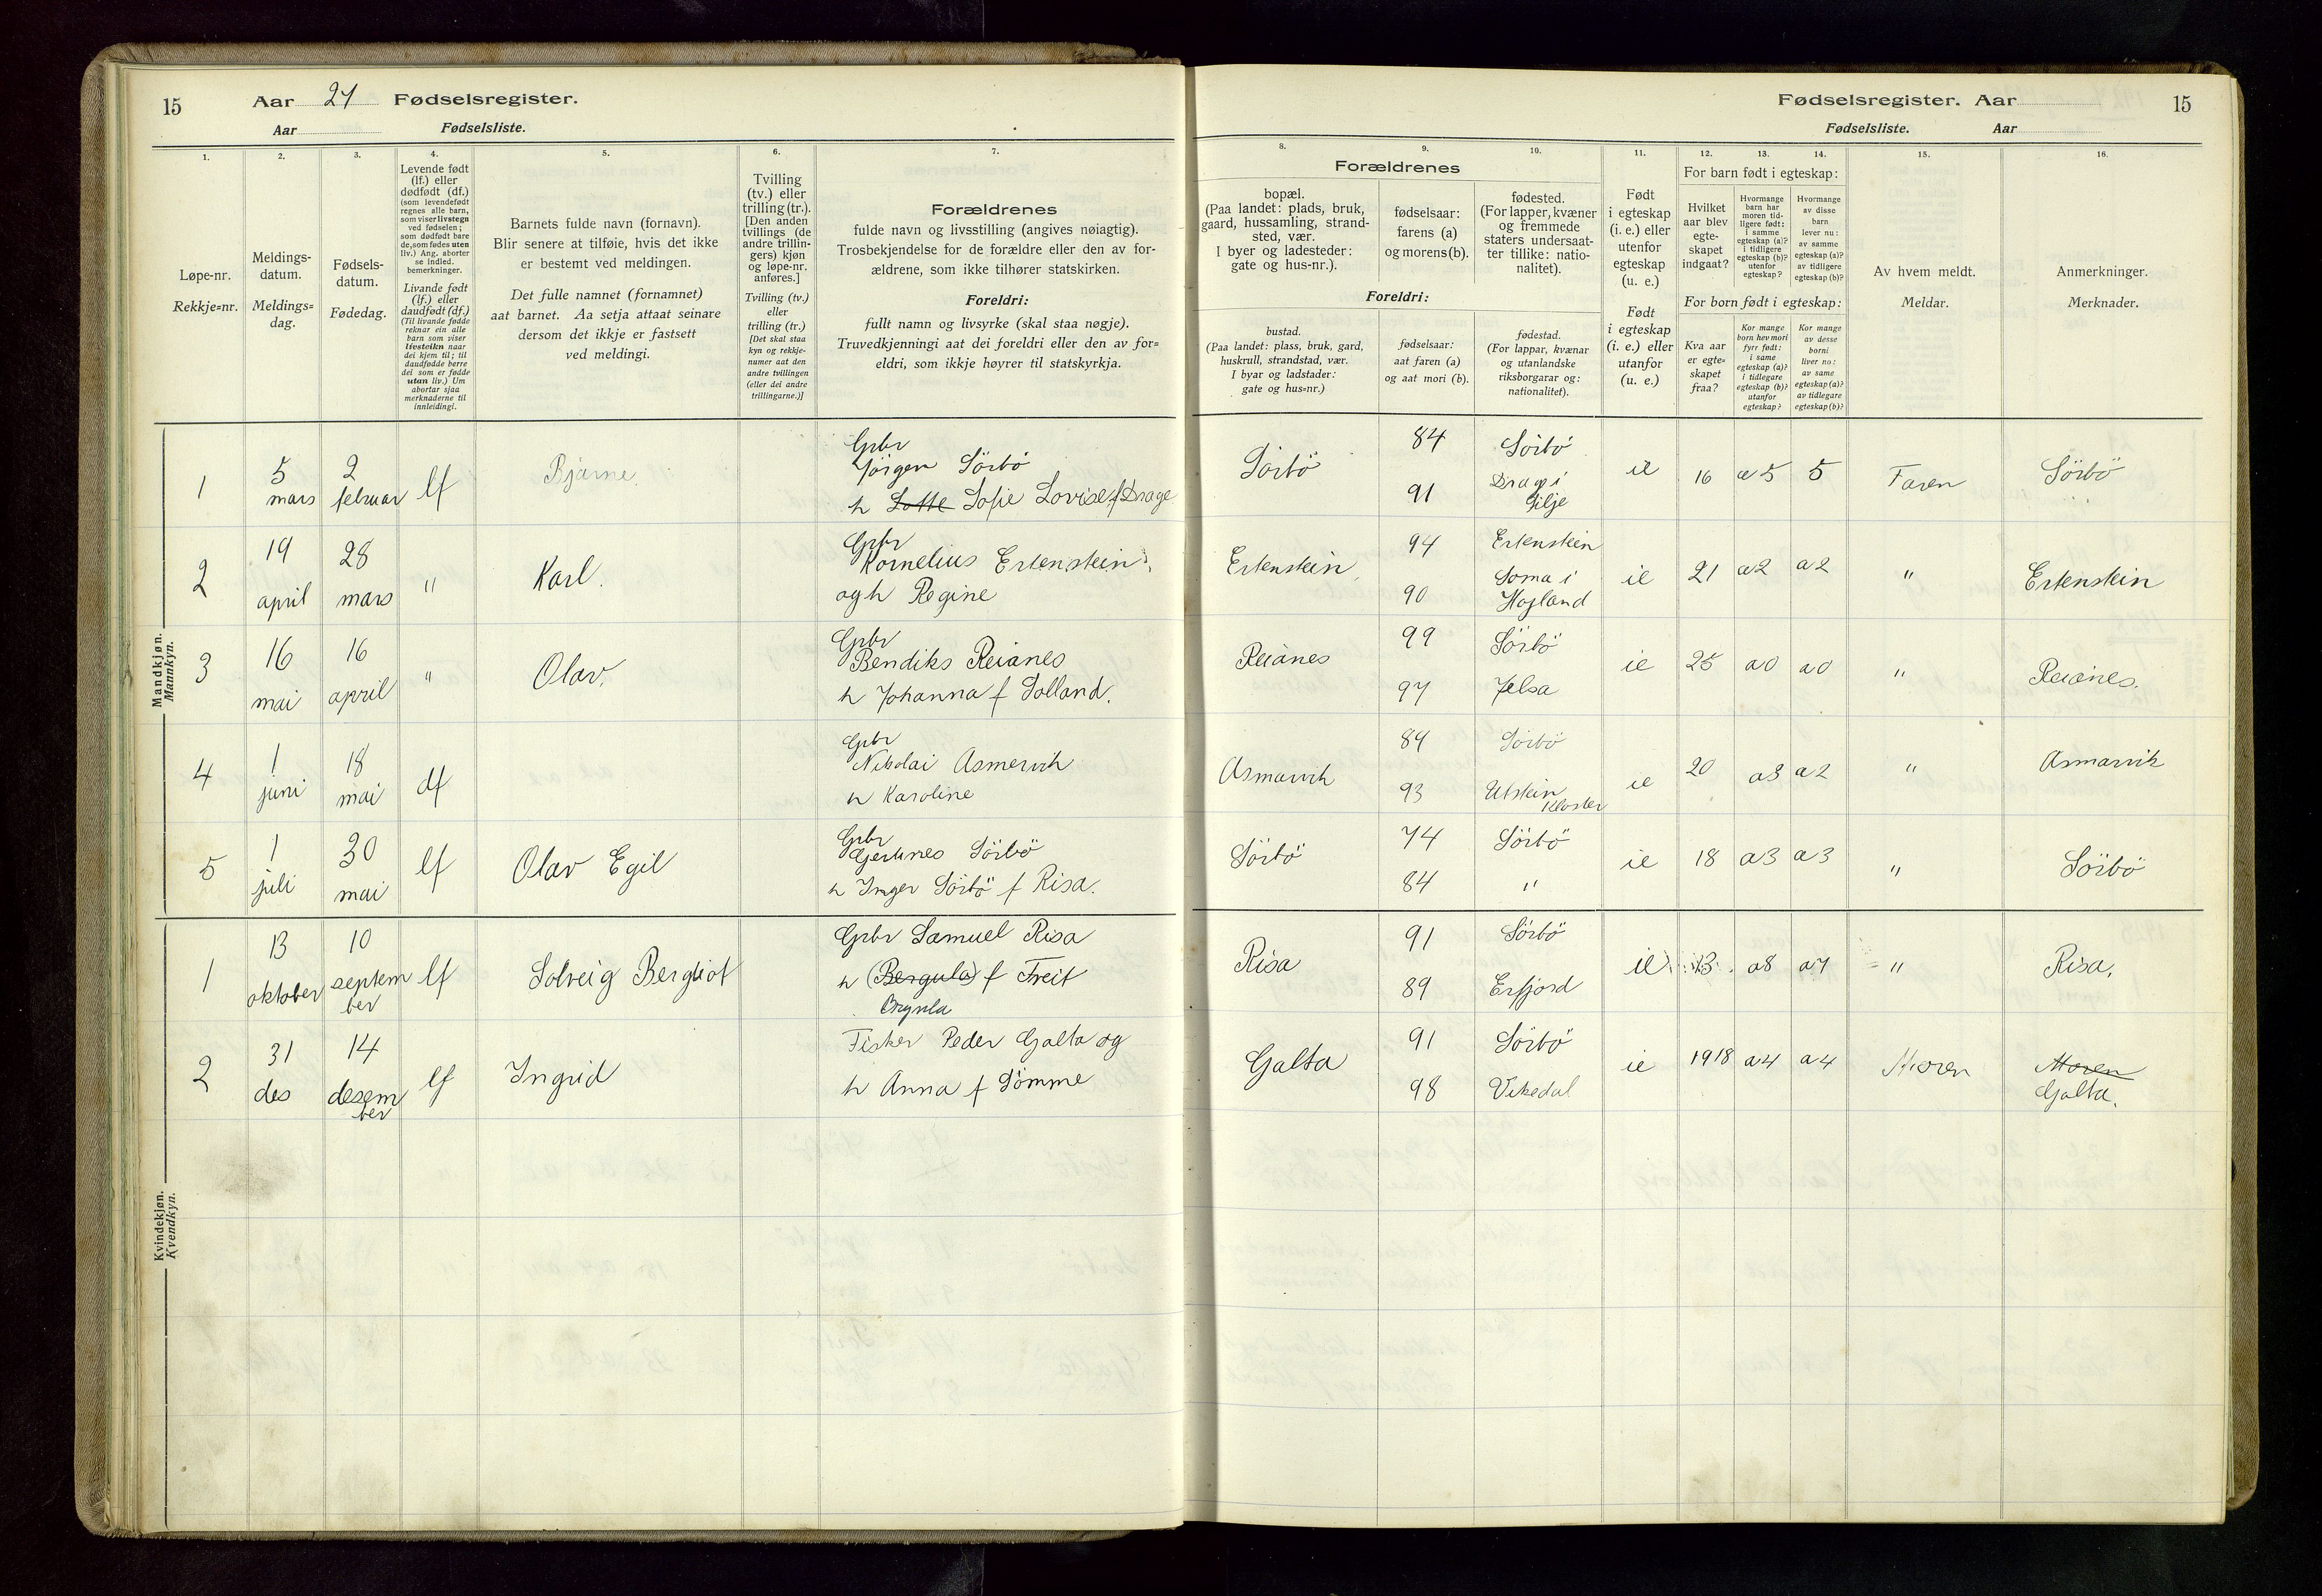 15 Aar 27 Fødselsregister.
Aar Fødselsliste.
1. 2. 3. 4. 5. 6. 7.
Løpe-nr.
Rekkje=nr.
Meldings-
datum.
Meldings=
dag.
Fødsels-
datum.
Fødedag.
Levende født
(lf.) eller
dødfødt (df.)
(som levendefødt
regnes alle barn,
som viser livstegn
ved fødselen;
som dødfødt bare
de, som fødes uten
liv.) Ang. aborter
se indled.
bemerkninger.
Livande født
(lf.) eller
daudfødt (df.)
(Til livande fødde
reknar ein alle
barn som viser
livsteikn naar
dei kjem til; til
daudfødde berre
dei som er fødde
utan liv.) Um
abortar sjaa
merknaderne til
innleidingi.
Barnets fulde navn (fornavn).
Blir senere at tilføie, hvis det ikke
er bestemt ved meldingen.
Det fulle namnet (fornamnet)
aat barnet. Aa setja attaat seinare
dersom det ikkje er fastsett
ved meldingi.
Tvilling
(tv.) eller
trilling (tr.).
[Den anden
tvillings (de
andre trillin-
gers) kjøn
og løpe-nr.
anføres.]
Tvilling (tv.)
eller
trilling (tr.)
[Det skal staa
kyn og rekkje-
numer aat den
andre tvillingen
(eller dei andre
trillingarne.)]
Forældrenes
fulde navn og livsstilling (angives nøiagtig).
Trosbekjendelse for de forældre eller den av for-
ældrene, som ikke tilhører statskirken.
Foreldri:
fullt namn og livsyrke (skal staa nøgje).
Truvedkjenningi aat dei foreldri eller den av for=
eldri, som ikkje høyrer til statskyrkja.
Mandkjøn.
Mannkyn.
1 5 mars 2 februar lf Bjarne.
Gpbr
Jörgen Sörbö
h Lotte Sofie Lovise f Drage
2 19 april 28 mars " Karl.
Gpbr
Kornelius Ertenstein
og h Regine
3 16 mai 16 april " Olav.
Gpbr
Bendiks Reianes
h Johanna f Solland.
4 1 juni 18 mai df
Gpbr
Nikolai Asmervik
h Karoline
5 1 juli 30 mai lf Olav Egil
Gpbr
Gjertines Sörbö
h Inger Sörbö f Risa.
Kvindekjøn.
Kvendkyn.
1 13 oktober 10 septem
ber lf Solveig Bergliot
Gpbr Samuel Risa
h (Bergula) f Freit
Brynla
2 31 des 14 desem
ber lf Ingrid
Fisker Peder Galta og
h Anna f Sömme
Fødselsregister. Aar 15
Fødselsliste. Aar
8. 9. 10. 11. 12. 13. 14. 15. 16.
Forældrenes
bopæl.
(Paa landet: plads, bruk,
gaard, hussamling, strand-
sted, vær.
I byer og ladesteder:
gate og hus-nr.).
fødselsaar:
farens (a)
og morens (b).
fødested.
(For lapper, kvæner
og fremmede
staters undersaat-
ter tillike: natio-
nalitet).
Foreldri:
bustad.
(Paa landet: plass, bruk, gard,
huskrull, strandstad, vær.
I byar og ladstader:
gate og hus=nr.)
fødselsaar:
aat faren (a)
og aat mori (b).
fødestad.
(For lappar, kvænar
og utanlandske
riksborgarar og:
nationalitet).
Født
i egteskap
(i. e.) eller
utenfor
egteskap
(u. e.)
Født
i egteskap
(i. e.) eller
utanfor
(u. e.)
For barn født i egteskap:
Hvilket
aar blev
egte-
skapet
indgaat?
Hvormange
barn har
moren tid-
ligere født:
i samme
egteskap (a)?
i tidligere
egteskap (b)?
utenfor
egteskap?
Hvormange
av disse
barn
lever nu:
av samme
egteskap (a)?
av tidligere
egteskap (b)?
For born født i egteskap:
Kva aar
er egte=
skapet
fraa?
Kor mange
born hev mori
fyrr født:
i same
egteskap (a)?
i tidlegare
egteskap (b)?
utanfor
egteskap?
Kor mange
av desse
borni
liver no:
av same
egteskap (a)?
av tidlegare
egteskap (b)?
Av hvem meldt.
Meldar.
Anmerkninger.
Merknader.
Sörbö 84 Sörbö
91 Drage i
Gilje ie 16 a 5 5 Faren Sörbö
Ertenstein 94 Ertenstein
90 Soma i
Hogland ie 21 a2 a2 " Ertenstein
Reianes 99 Sörbö
97 Jelsa ie 25 a0 a0 " Reianes.
Asmarvik 89 Sörbö
93 Utstein
Kloster ie 20 a3 a2 " Asmarvik
Sörbö 74 Sörbö
84 " ie 18 a3 a3 " Sörbö
Risa 91 Sörbö
89 Erfjord ie 13. a8 a7 " Risa.
Galta 91 Sörbö
98 Vikedal ie 1918 a4 a4 Moren Moren
Galta.